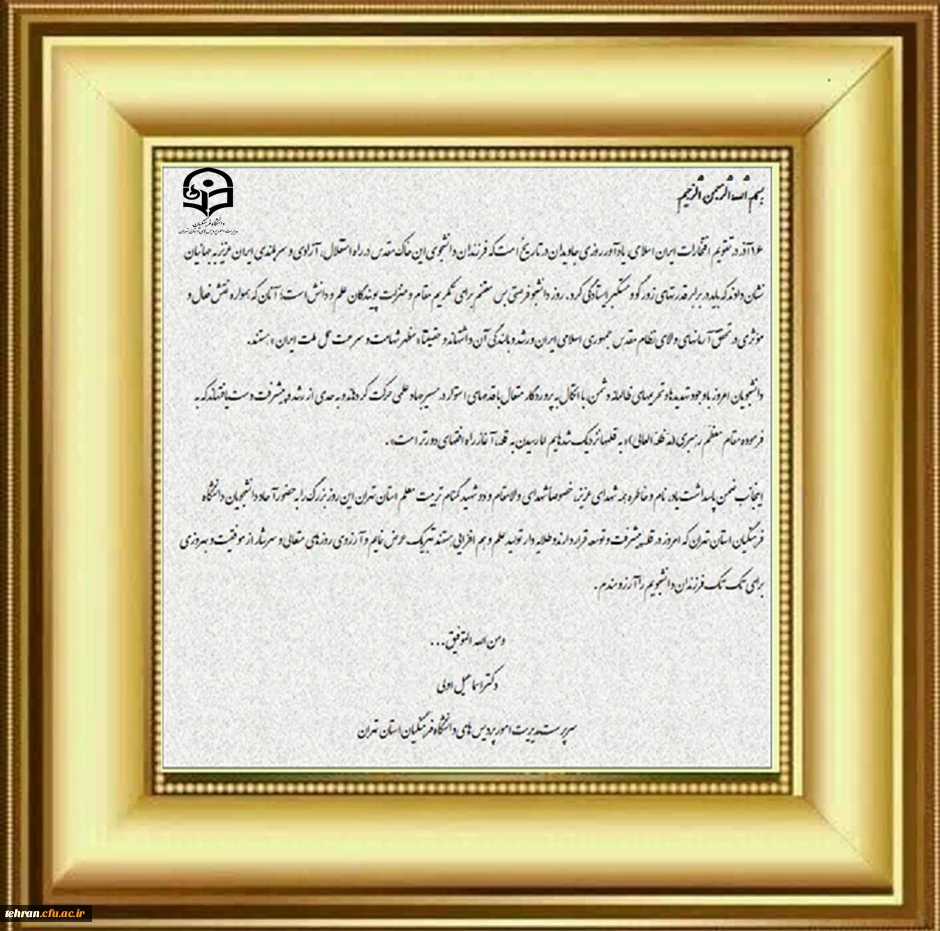 بسم الله الرحمن الرحیم
دانشگاه فرهنگیان
مدیریت امور پردیس های استان تهران
۱۶ آذر در تقویم افتخارات ایران اسلامی، یادآور روزی جاویدان در تاریخ است که فرزندان دانشجوی این خاک مقدس در راه استقلال، آزادی و سربلندی ایران عزیز به جهانیان
نشان دادند که باید در برابر قدرتهای زورگو و مستکبر ایستادگی کرد. روز دانشجو فرصتی بس مغتنم برای تکریم مقام و منزلت پویندگان علم و دانش است؛ آنان که همواره نقش فعال و
مؤثری در تحقق آرمانهای والای نظام مقدس جمهوری اسلامی ایران و رشد و بالندگی آن داشتهاند و حقیقتاً «مظهر شهامت و سرعت عمل ملت ایران» هستند.
دانشجویان امروز با وجود تهدیدها و تحریمهای ظالمانه دشمن، با اتکال به پروردگار متعال با قدمهای استوار در مسیر جهاد علمی حرکت کردهاند و به حدی از رشد و پیشرفت دست یافتهاند که به
فرموده مقام معظم رهبری (مد ظله العالی) «به قلهها نزدیک شدهایم اما رسیدن به قله، آغاز راه افقهای دورتر است».
اینجانب ضمن پاسداشت یاد، نام و خاطره همه شهدای عزیز، خصوصا شهدای والامقام و دو شهید گمنام تربیت معلم استان تهران این روز بزرگ را به حضور آحاد دانشجویان دانشگاه
فرهنگیان استان تهران که امروز در قله پیشرفت و توسعه قرار دارند و طلایه دار تولید علم و هم افزایی هستند تبریک عرض نمایم و آرزوی روزهای متعالی و سرشار از موفقیت و بهروزی
برای تک تک فرزندان دانشجویم را آرزومندم.
ومن الله التوفیق...
دکتر اسماعیل اولی
سرپرست مدیریت امور پردیس های دانشگاه فرهنگیان استان تهران
tehran.cfu.ac.ir